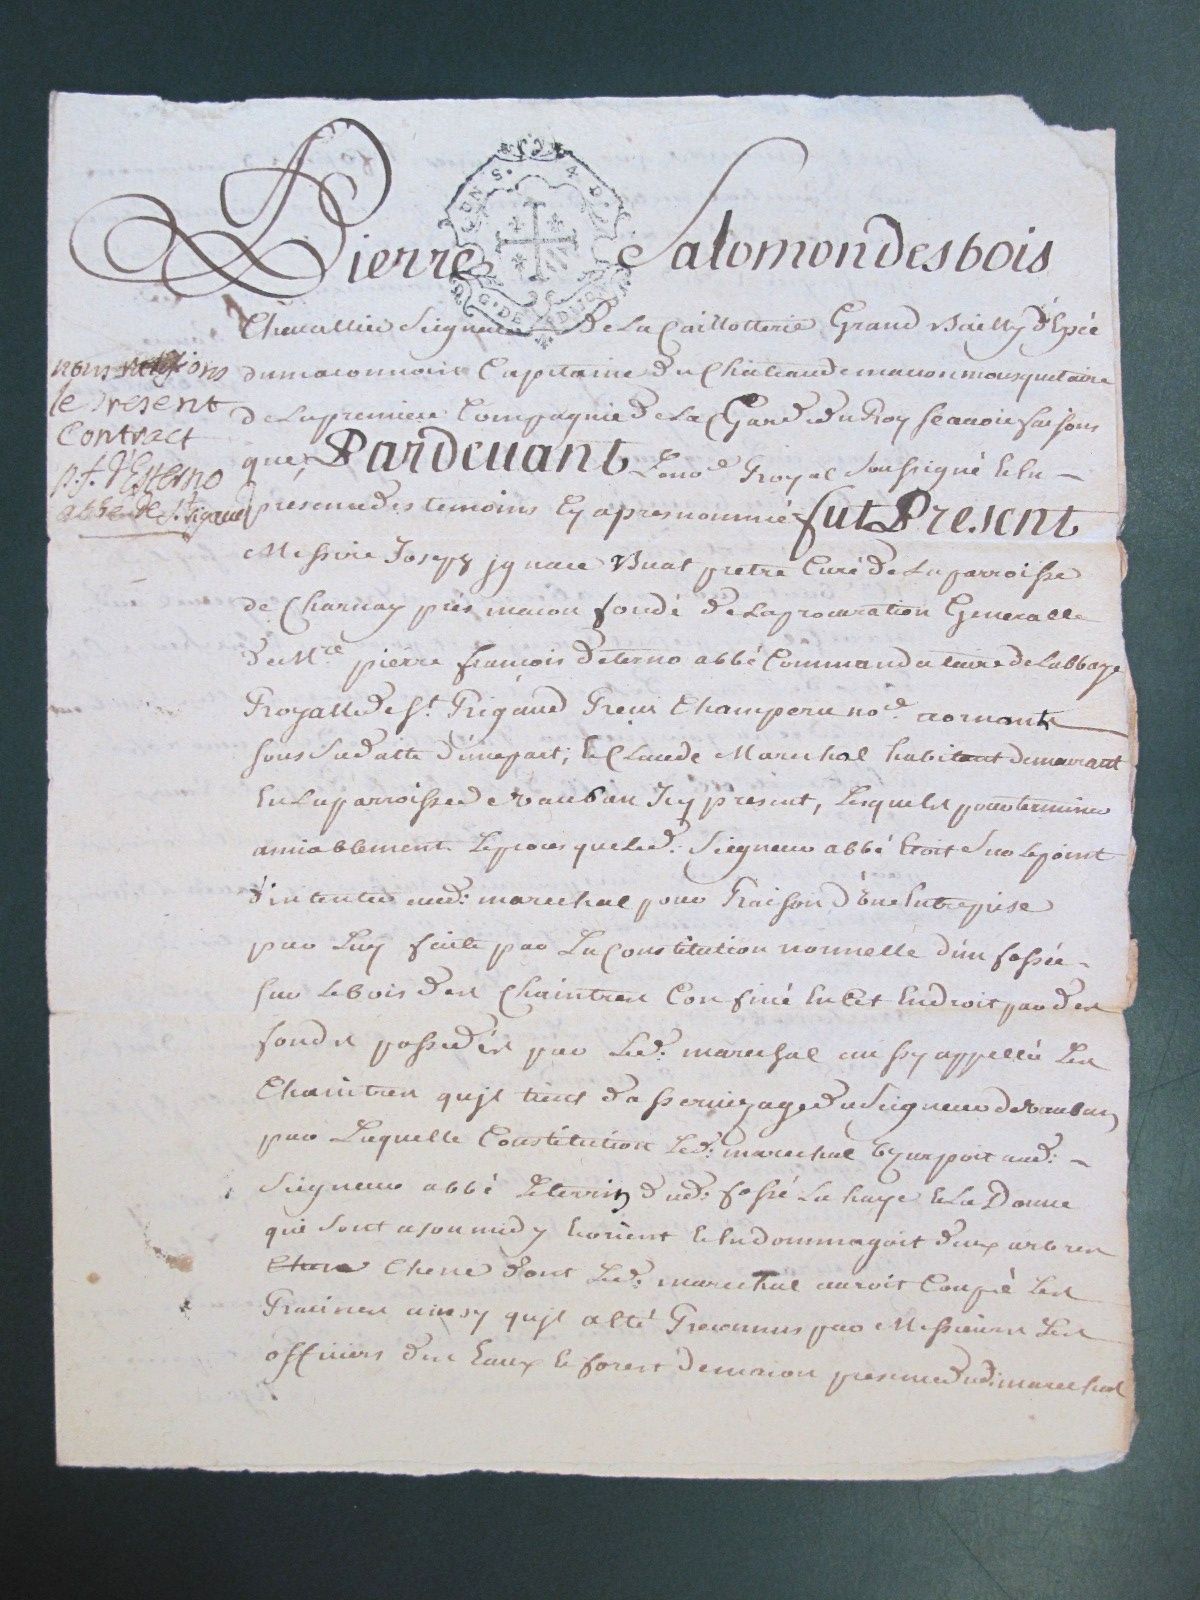 UN S. 4 D.
G. DE DIJON
Pierre Salomon Desbois
Chevallier Seigneur De La Caillotterie Grand Bailly d'Epée
du maconnois Capitaine Du Chateau de macon mousquetaire
de La premiere Compagnie De La Garde du Roy scavoir faisons
que, Pardevant Lenore Royal Soussigné et en
presence des temoins Cy apres nommés fut Present
Messire Joseph jgnace Buat pretre Curé De La parroisse
de Charnay près macon fondé De La procuration Generalle
de Mre pierre francois Deterno abbé Commandataire de Labbaye
Royalle De St Rigaud Recue Champeru nore a ornant
sous sa datte d'unepart; et Claude Marechal habitant demeurant
En La parroisse de vauban Icy present, Lesquels pour terminer
amiablement Le proces que Led: Seigneur abbé Etoit Sur Le point
d'intenter aud: marechal pour Raison d'une Entreprise
par Luy faite par La Constitution nouvelle d'un fossée
sur Le bois des Chaintres Confiné En Cet Endroit par des
fonds possedés par Led: marechal aussy appellée Les
Chaintres qu'jl tient d'asservizage du Seigneur de vauban
par Laquelle Constitution Led: marechal Usurpoit aud:
Seigneur abbé Le terrin dud: fossé La haye et La Donne
qui sont a son midy Et orient et Endommagoit deux arbres
Chene dont Led: marechal auroit Coupé Les
Racines ainsy qu'jl a Eté Reconnus par Messieurs Les
officiers des Eaux et forest De macon presence dud: marechal
nous ratifions
le present
Contract
p. f. d'Esterno
abbé de St Rigaud